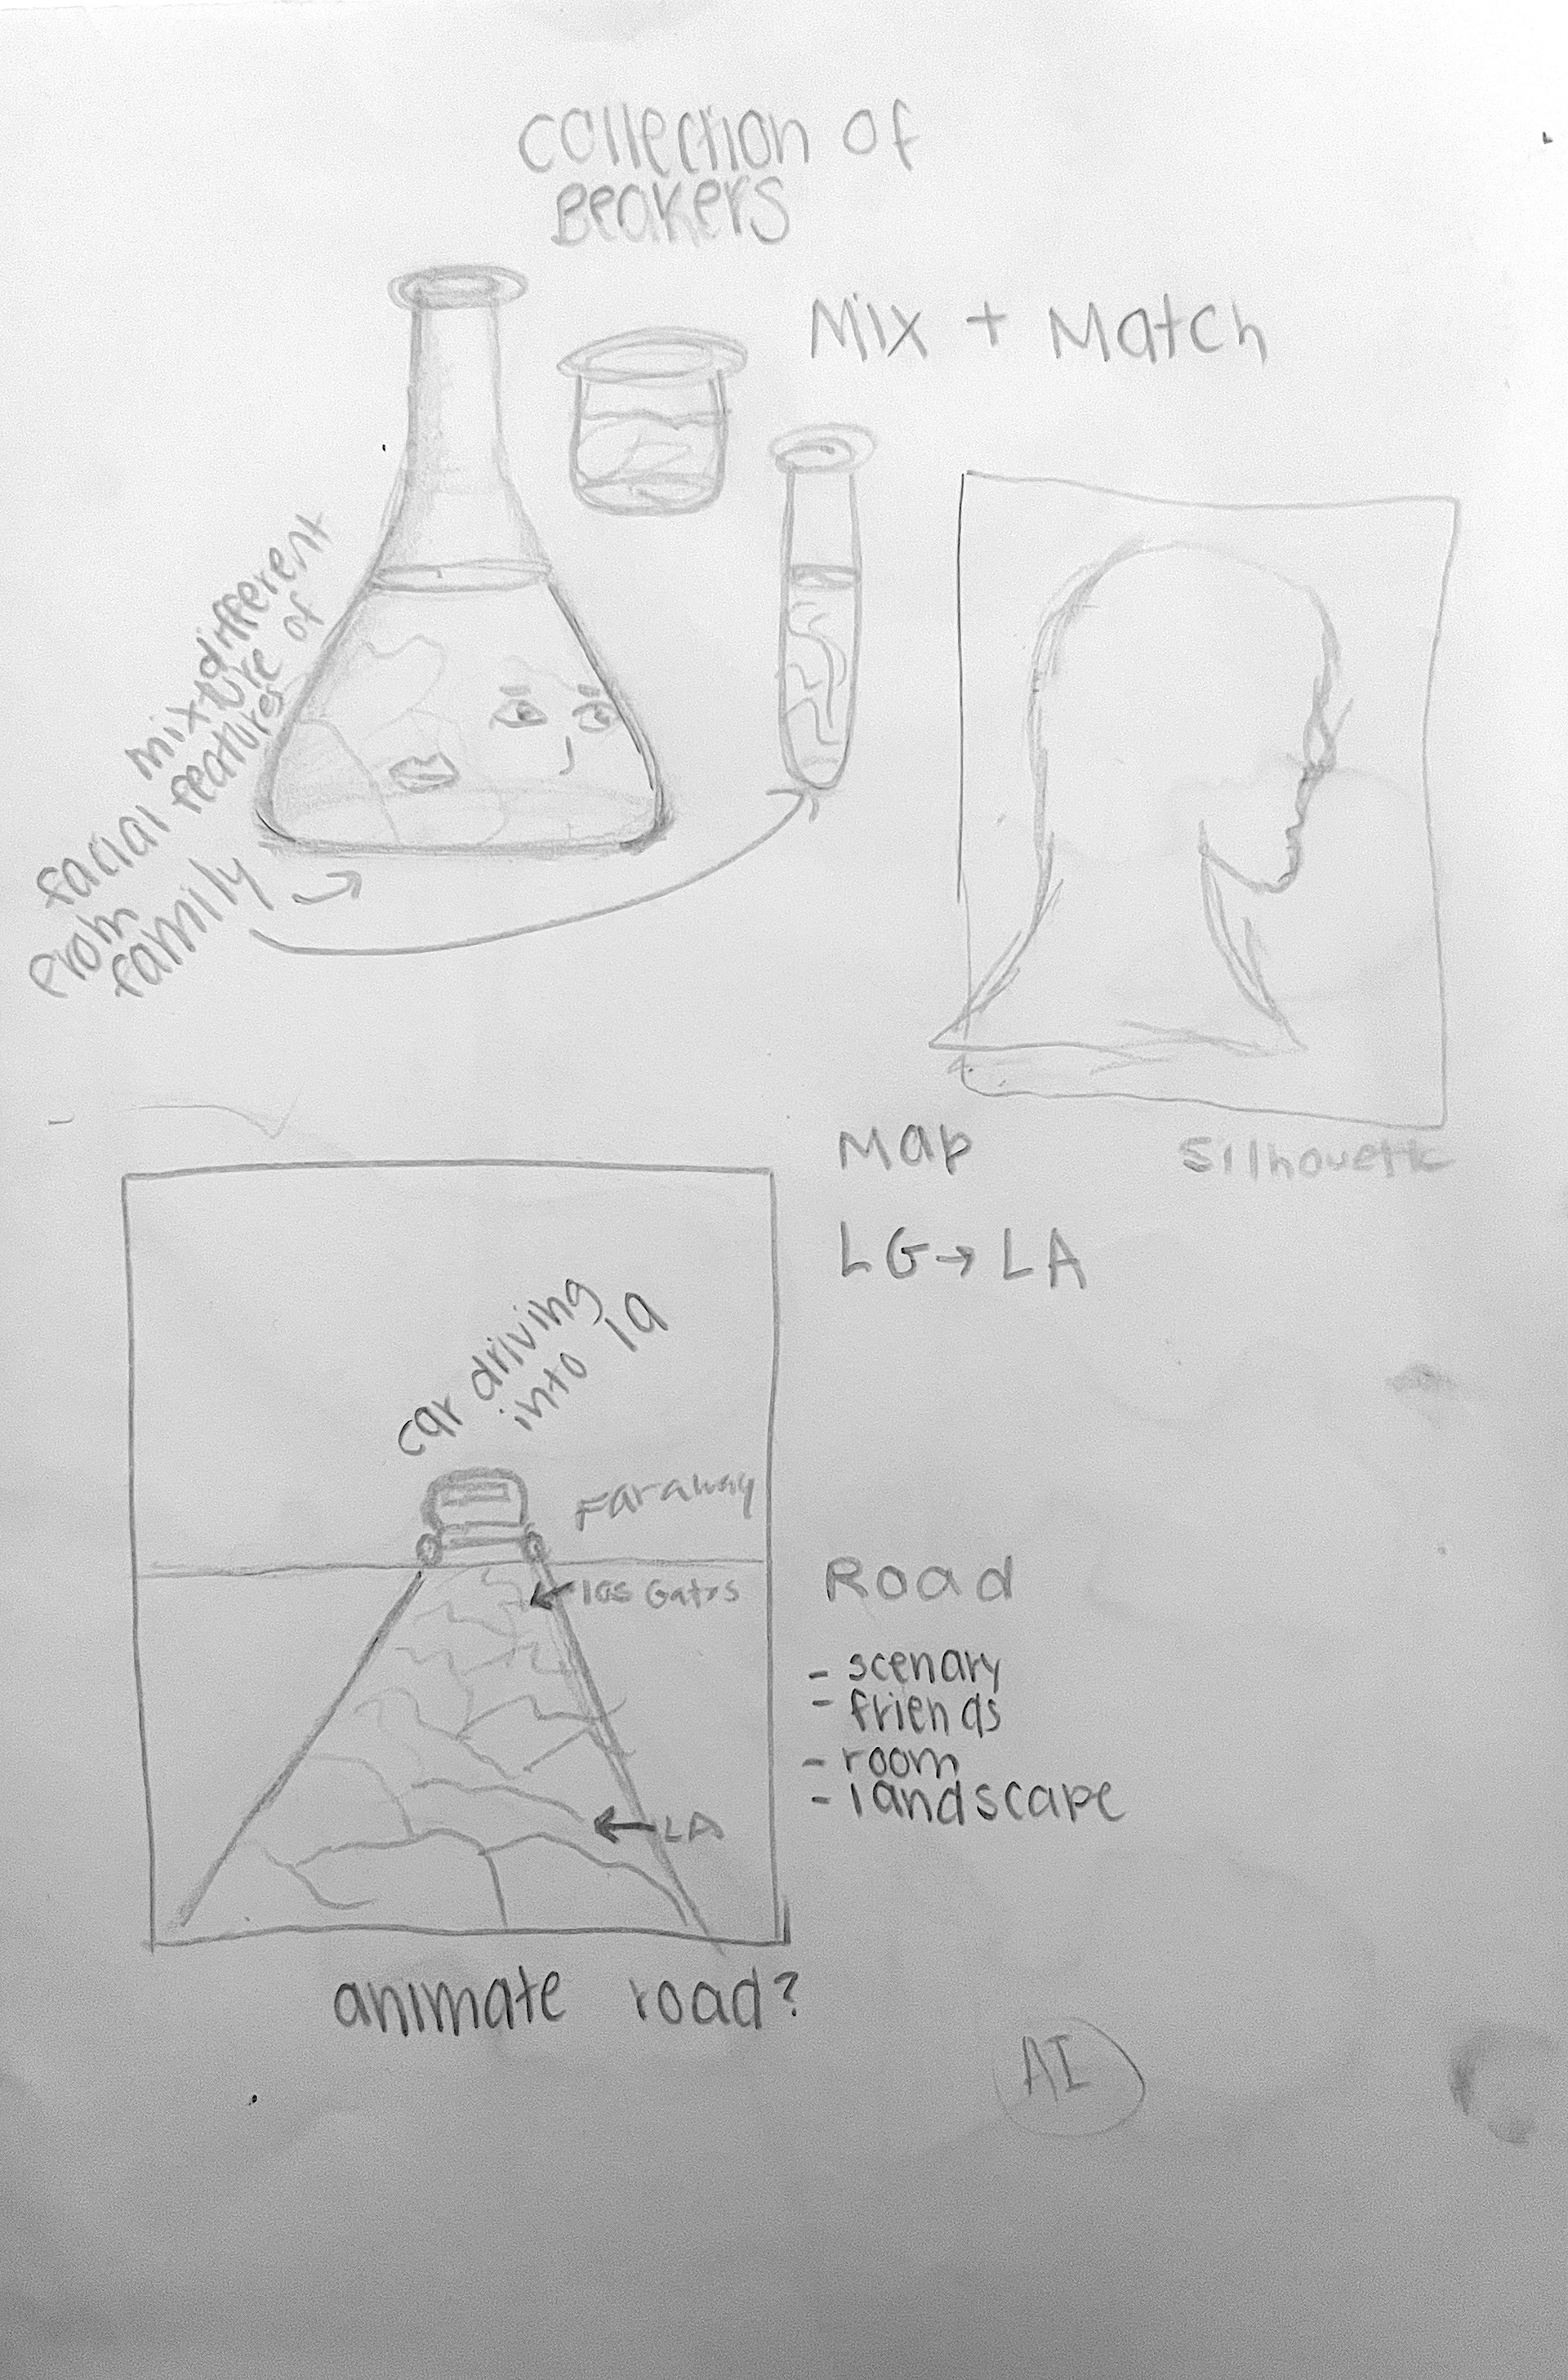 collection of
Beakers
Mix + Match
mixture of
different
facial features
from
family
Silhouette
Map
LG → LA
car driving
into la
Faraway
los Gatos
LA
Road
- scenary
- friends
- room
- landscape
animate road?
AI